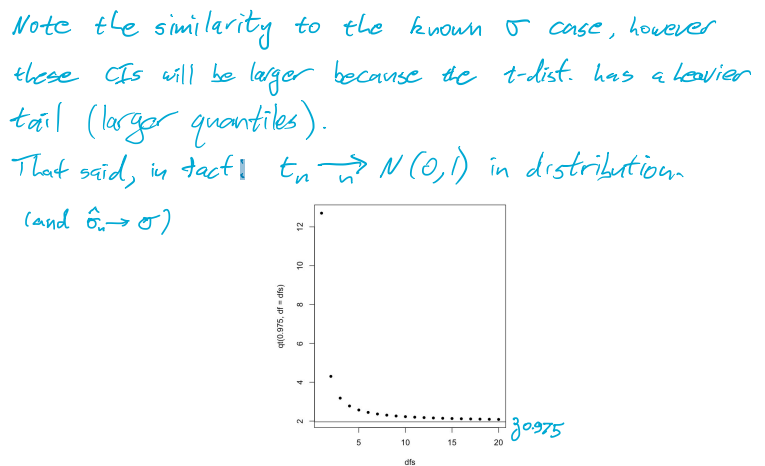 Note the similarity to the known σ case, however
these CIs will be larger because the t-dist. has a heavier
tail (larger quantiles).
That said, in fact: t_n →_n N(0,1) in distribution.
(and σ̂_n → σ)
12
10
8
6
4
2
qt(0.975, df = dfs)
z0.975
5 10 15 20
dfs